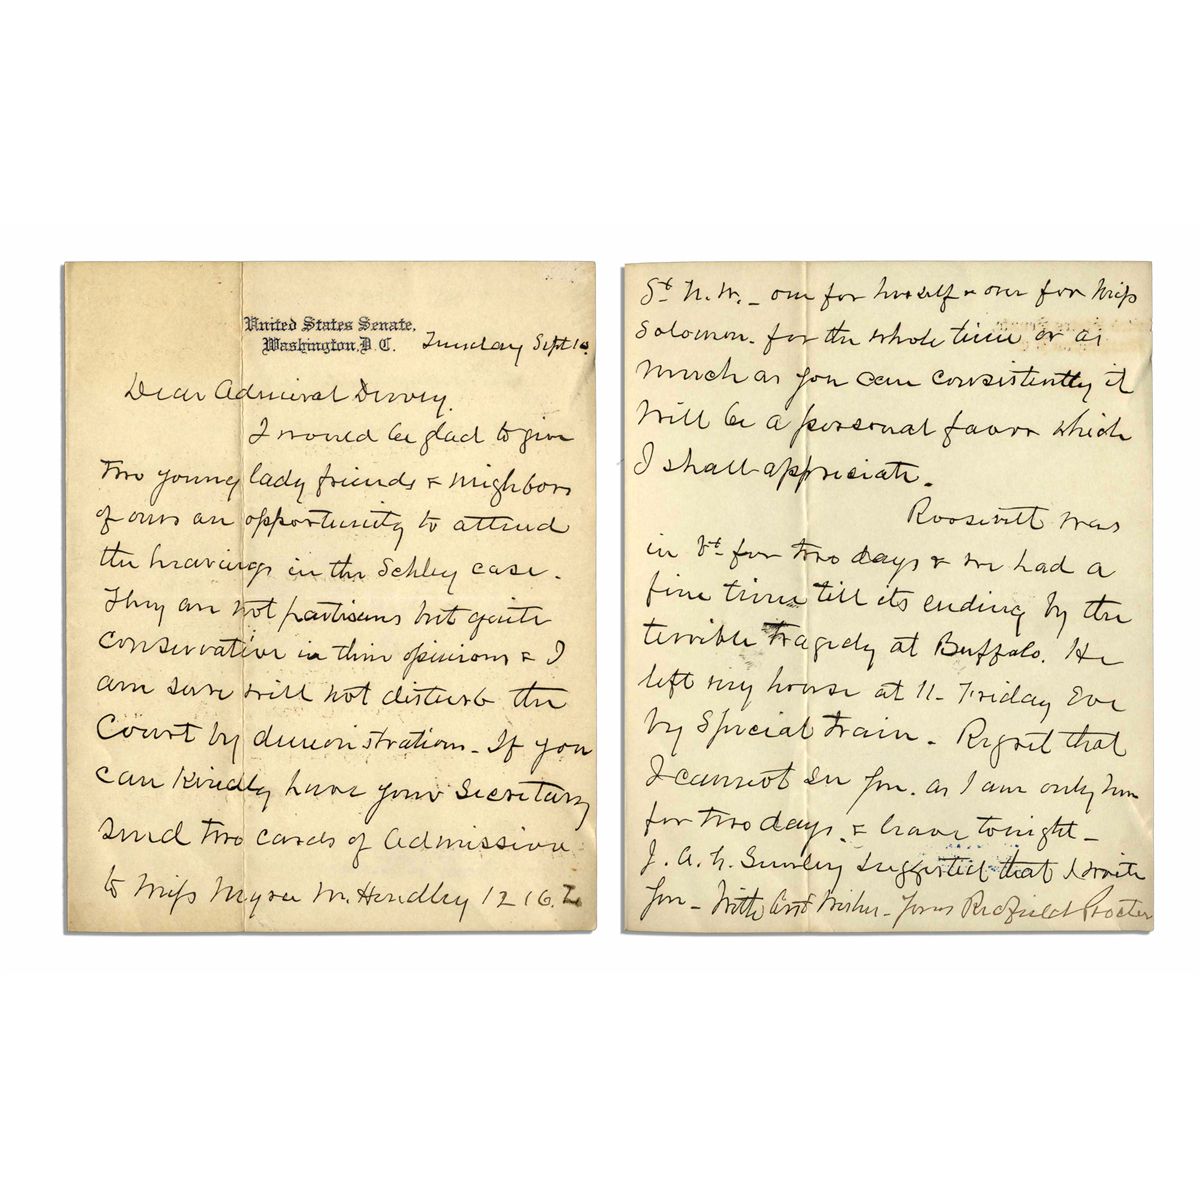 United States Senate,
Washington, D. C. Tuesday Sept 10
Dear Admiral Dewey.
I would be glad to give
two young lady friends & neighbors
of ours an opportunity to attend
the hearings in the Schley case.
They are not partisans but quite
conservative in their opinions & I
am sure will not disturb the
Court by demonstrations. If you
can Kindly have your Secretary
send two cards of admission
to Miss Myra M. Hendley 1216.
St. N.W. – one for herself & one for Miss
Solomon. for the whole time or as
much as you can consistently it
will be a personal favor which
I shall appreciate.
Roosevelt was
in Vt. for two days & we had a
fine time till its ending by the
terrible tragedy at Buffalo. He
left my house at 11– Friday Eve
by Special train. Regret that
I cannot see you. as I am only here
for two days. & leave tonight –
J. A. suggested that I write
you – With best wishes – Yours Redfield Proctor